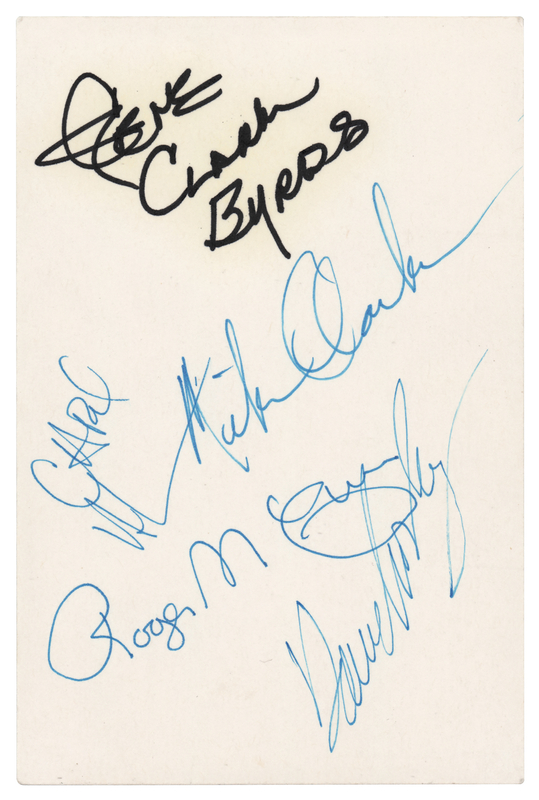 Gene
Clark
Byrds
Mike Clarke
Chris
Roger McGuinn
David Crosby